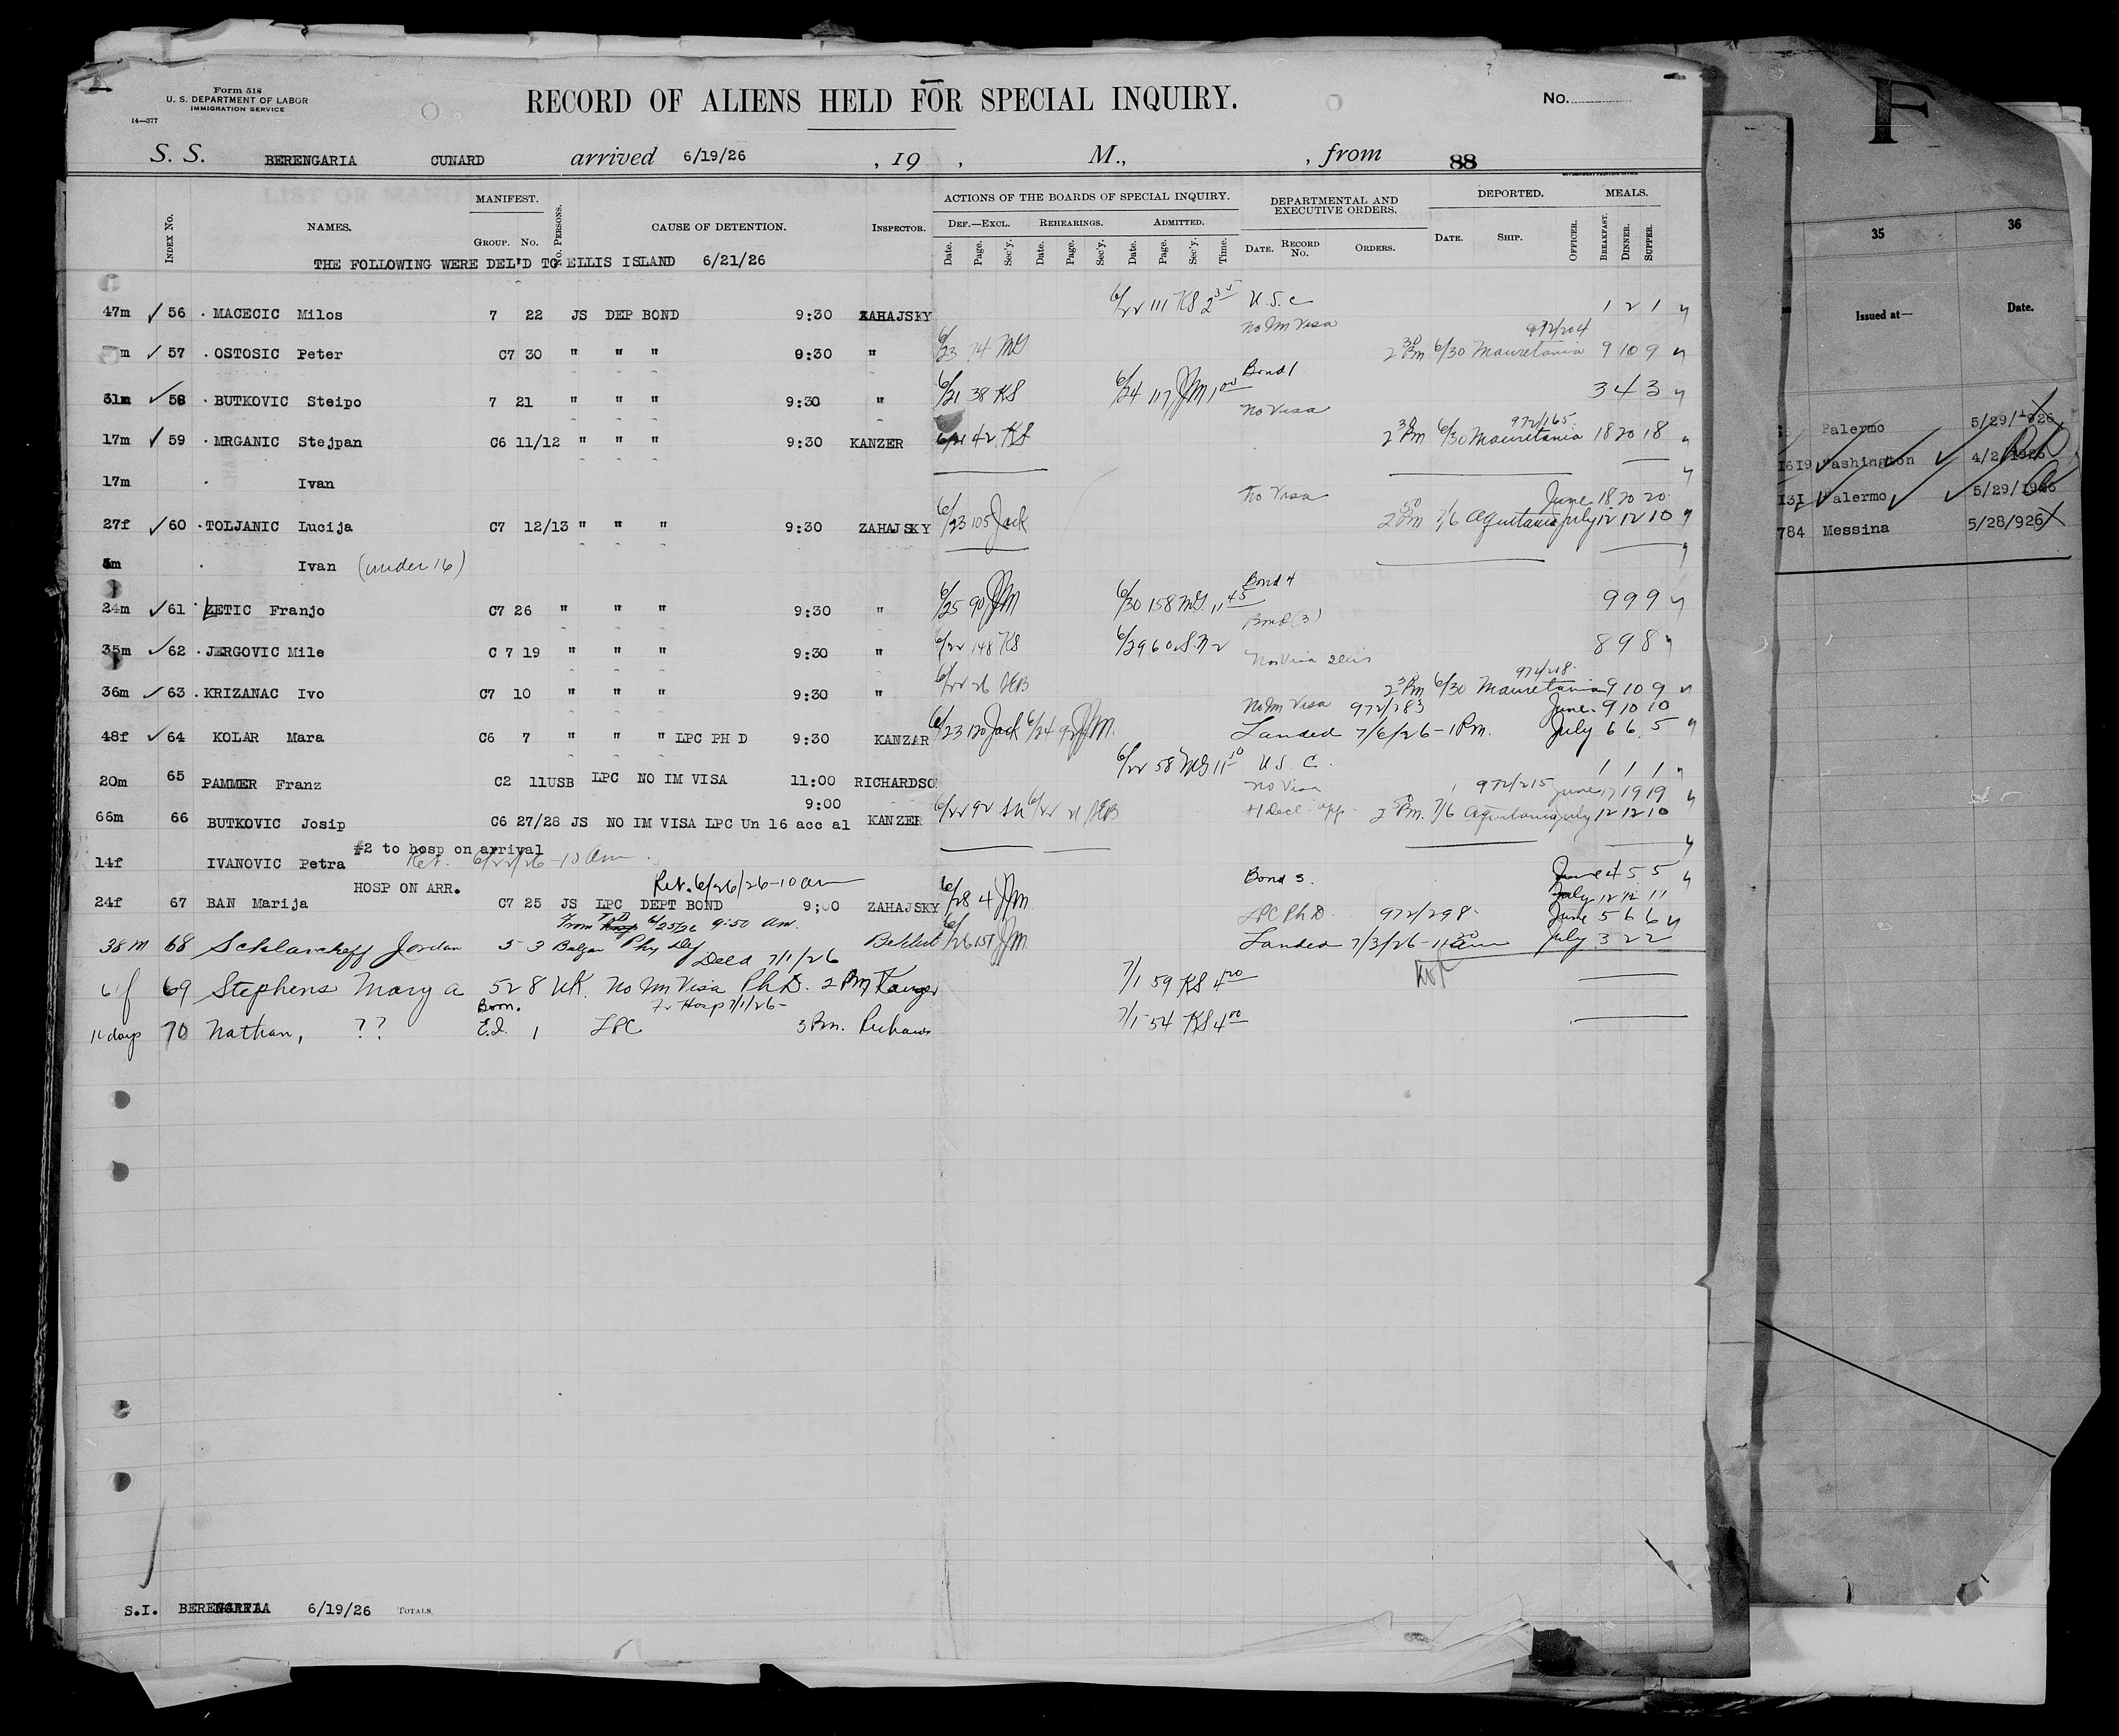 Form 518
U. S. DEPARTMENT OF LABOR
IMMIGRATION SERVICE
14—377
RECORD OF ALIENS HELD FOR SPECIAL INQUIRY.
No.
S. S. BERENGARIA CUNARD arrived 6/19/26 , 19 , M., , from 88
Index No. NAMES. MANIFEST. Group. No. No. Persons. CAUSE OF DETENTION. Inspector. ACTIONS OF THE BOARDS OF SPECIAL INQUIRY. DEPARTMENTAL AND EXECUTIVE ORDERS. DEPORTED. MEALS.
Def.—Excl. Rehearings. Admitted.
Date. Page. Sec'y. Date. Page. Sec'y. Date. Page. Sec'y. Time. Date. Record No. Orders. Date. Ship. Officer. Breakfast. Dinner. Supper.
THE FOLLOWING WERE DEL'D TO ELLIS ISLAND 6/21/26
47m ✓ 56 . MACECIC Milos 7 22 JS DEP BOND 9:30 ZAHAJSKY 6/22 111 KS 2 35 U.S.C 1 2 1
No Im Visa 972/204
m ✓ 57 . OSTOSIC Peter C7 30 " " " 9:30 " 6/23 74 MG 2 30 Pm 6/30 Mauretania 9 10 9
Bond 1
31m ✓ 58 . BUTKOVIC Steipo 7 21 " " " 9:30 " 6/21 38 KS 6/24 117 JM 1 00 3 4 3
No Visa 972/165
17m ✓ 59 . MRGANIC Stejpan C6 11/12 " " " 9:30 KANZER 6/21 42 KS 2 30 Pm 6/30 Mauretania 18 20 18
17m . Ivan
No Visa June 18 20 20
27f ✓ 60 . TOLJANIC Lucija C7 12/13 " " " 9:30 ZAHAJSKY 6/23 105 Jack 2 50 Pm 7/6 Aquitania July 12 12 10
5m . Ivan (under 16)
Bond 4
24m ✓ 61 ZETIC Franjo C7 26 " " " 9:30 " 6/25 90 JM 6/30 158 MG 11 45 9 9 9
Bond (3)
35m ✓ 62 . JERGOVIC Mile C 7 19 " " " 9:30 " 6/22 148 KS 6/29 60 S.N 2 8 9 8
No Visa 974/218
36m ✓ 63 . KRIZANAC Ivo C7 10 " " " 9:30 " 6/22 26 2 30 Pm 6/30 Mauretania 9 10 9
No Im Visa 972/283 June 9 10 10
48f ✓ 64 KOLAR Mara C6 7 " " " LPC PH D 9:30 KANZAR 6/23 120 Jack 6/24 92 JM Landed 7/6/26 - 1 Pm. July 6 6 5
20m 65 PAMMER Franz C2 11USB LPC NO IM VISA 11:00 RICHARDSO 6/22 58 MG 11 10 U.S.C. 1 1 1
No Visa 972/215 June 17 19 19
9:00
66m 66 BUTKOVIC Josip C6 27/28 JS NO IM VISA LPC Un 16 acc al KANZER 6/22 92 SN 6/22 21 #1 Decl. app. 2 50 Pm. 7/6 Aquitania July 12 12 10
#2 to hosp on arrival
14f IVANOVIC Petra Ret. 6/22/26 - 10 am.
HOSP ON ARR. Ret. 6/26/26 - 10 am Bond 3. June 4 5 5
24f 67 BAN Marija C7 25 JS LPC DEPT BOND 9:00 ZAHAJSKY 6/28 4 JM July 12 12 11
From TD 6/25/26 9:50 am. LPC Ph D. 972/298. June 5 6 6
38 m 68 Schlarcheff Jordan 5 3 Bulgar Phy Def 6/26 151 JM Landed 7/3/26 - 11 30 am July 3 2 2
Decd 7/1/26
6 f 69 Stephens Mary a 52 8 UK. No Im Visa Ph D. 2 Pm Kanzer 7/1 59 KS 4 20
Born. Fr Hosp 7/1/26 -
11 days 70 Nathan, ?? E.I. 1 LPC 3 Pm. 7/1 54 KS 4 00
S.I. BERENGARIA 6/19/26 Totals
F
35 36
Issued at— Date.
Palermo 5/29/1926
1619 Washington 4/2/1926
131 Palermo 5/29/1926
784 Messina 5/28/926